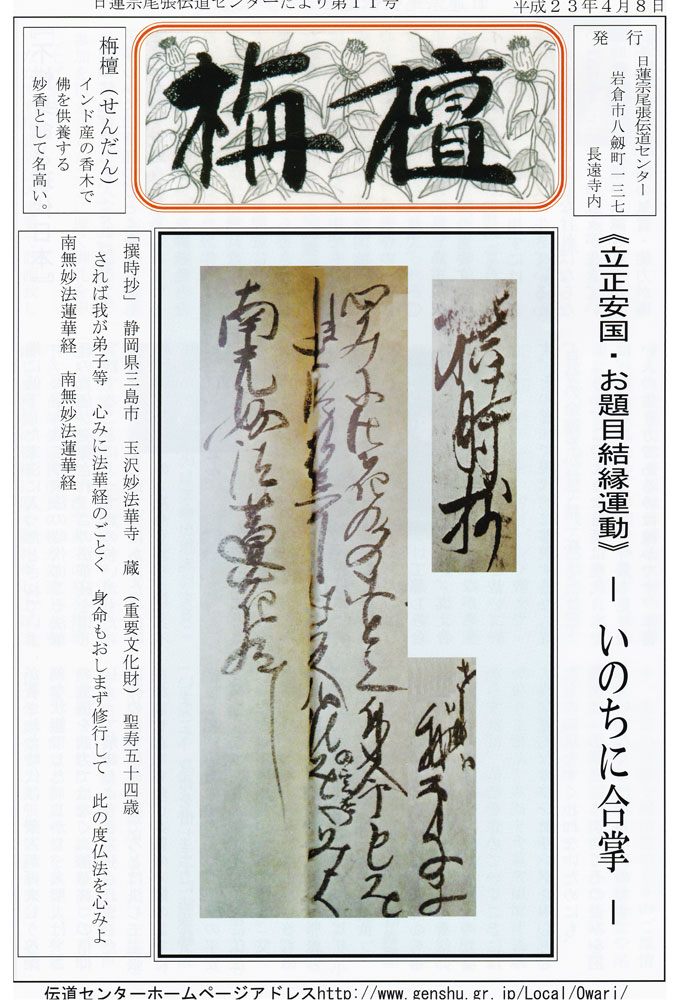 日蓮宗尾張伝道センターだより第11号
平成23年4月8日
発行
日蓮宗尾張伝道センター
岩倉市八劔町一三七
長遠寺内
栴檀
栴檀（せんだん）
インド産の香木で
佛を供養する
妙香として名高い。
《立正安国・お題目結縁運動》 ― いのちに合掌 ―
撰時抄
南無妙法蓮華経
「撰時抄」 静岡県三島市 玉沢妙法華寺 蔵 （重要文化財） 聖寿五十四歳
されば我が弟子等 心みに法華経のごとく 身命もおしまず修行して 此の度仏法を心みよ
南無妙法蓮華経 南無妙法蓮華経
伝道センターホームページアドレスhttp://www.genshu.gr.jp/Local/Owari/